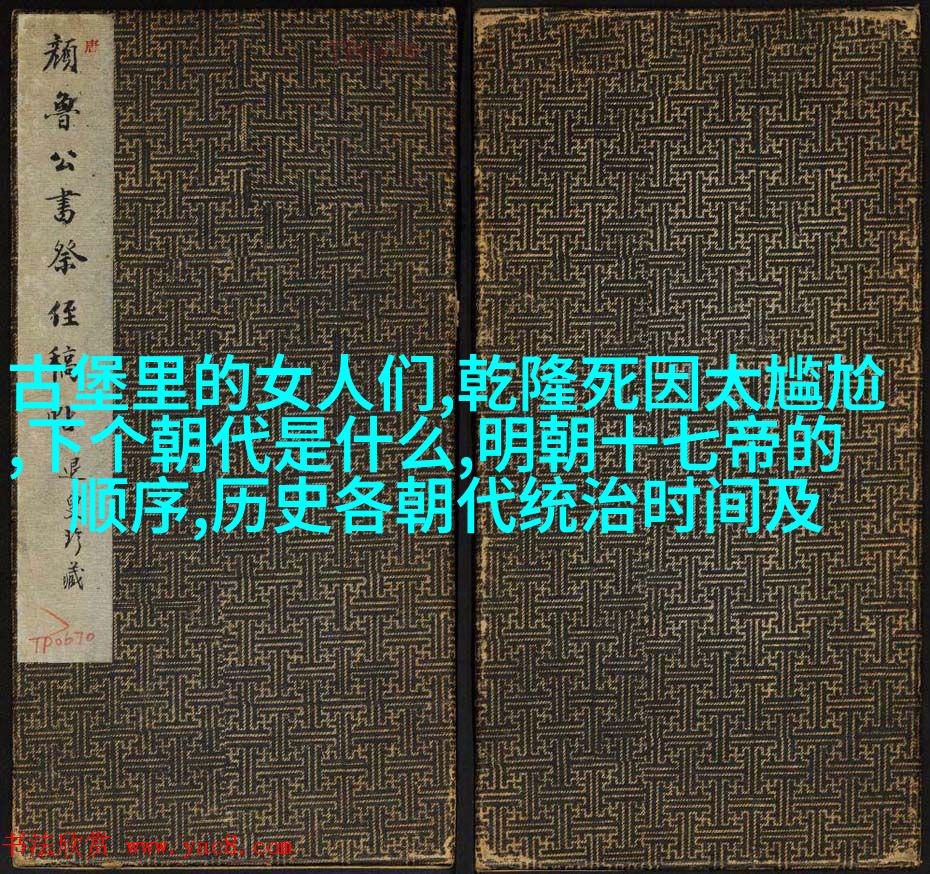 唐
颜鲁公书祭侄稿
珍藏
TP0670
古堡里的女人们,乾隆死因太尴尬
,下个朝代是什么,明朝十七帝的
顺序,历史各朝代统治时间及
书法欣赏 www.yac8.com